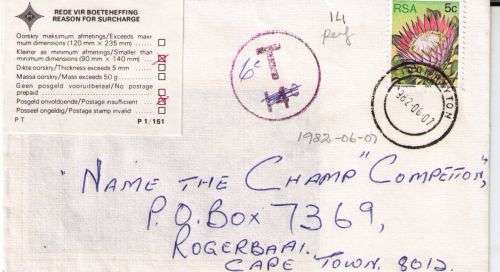 REDE VIR BOETEHEFFING
REASON FOR SURCHARGE
Oorsky maksimum afmetings/Exceeds maxi-
mum dimensions (120 mm × 235 mm)
Kleiner as minimum afmetings/Smaller than
minimum dimensions (90 mm × 140 mm)
Dikte oorsky/Thickness exceeds 5 mm
Massa oorsky/Mass exceeds 50 g
Geen posgeld vooruitbetaal/No postage
prepaid
Posgeld onvoldoende/Postage insufficient
Posseël ongeldig/Postage stamp invalid
P T
P 1/151
14
perf
6c
T
RSA 5c
1982-06-07
1982-06-07
"NAME THE CHAMP" COMPETITON",
P.O. BOX 7369,
ROGERBAAI.
CAPE TOWN. 8012.